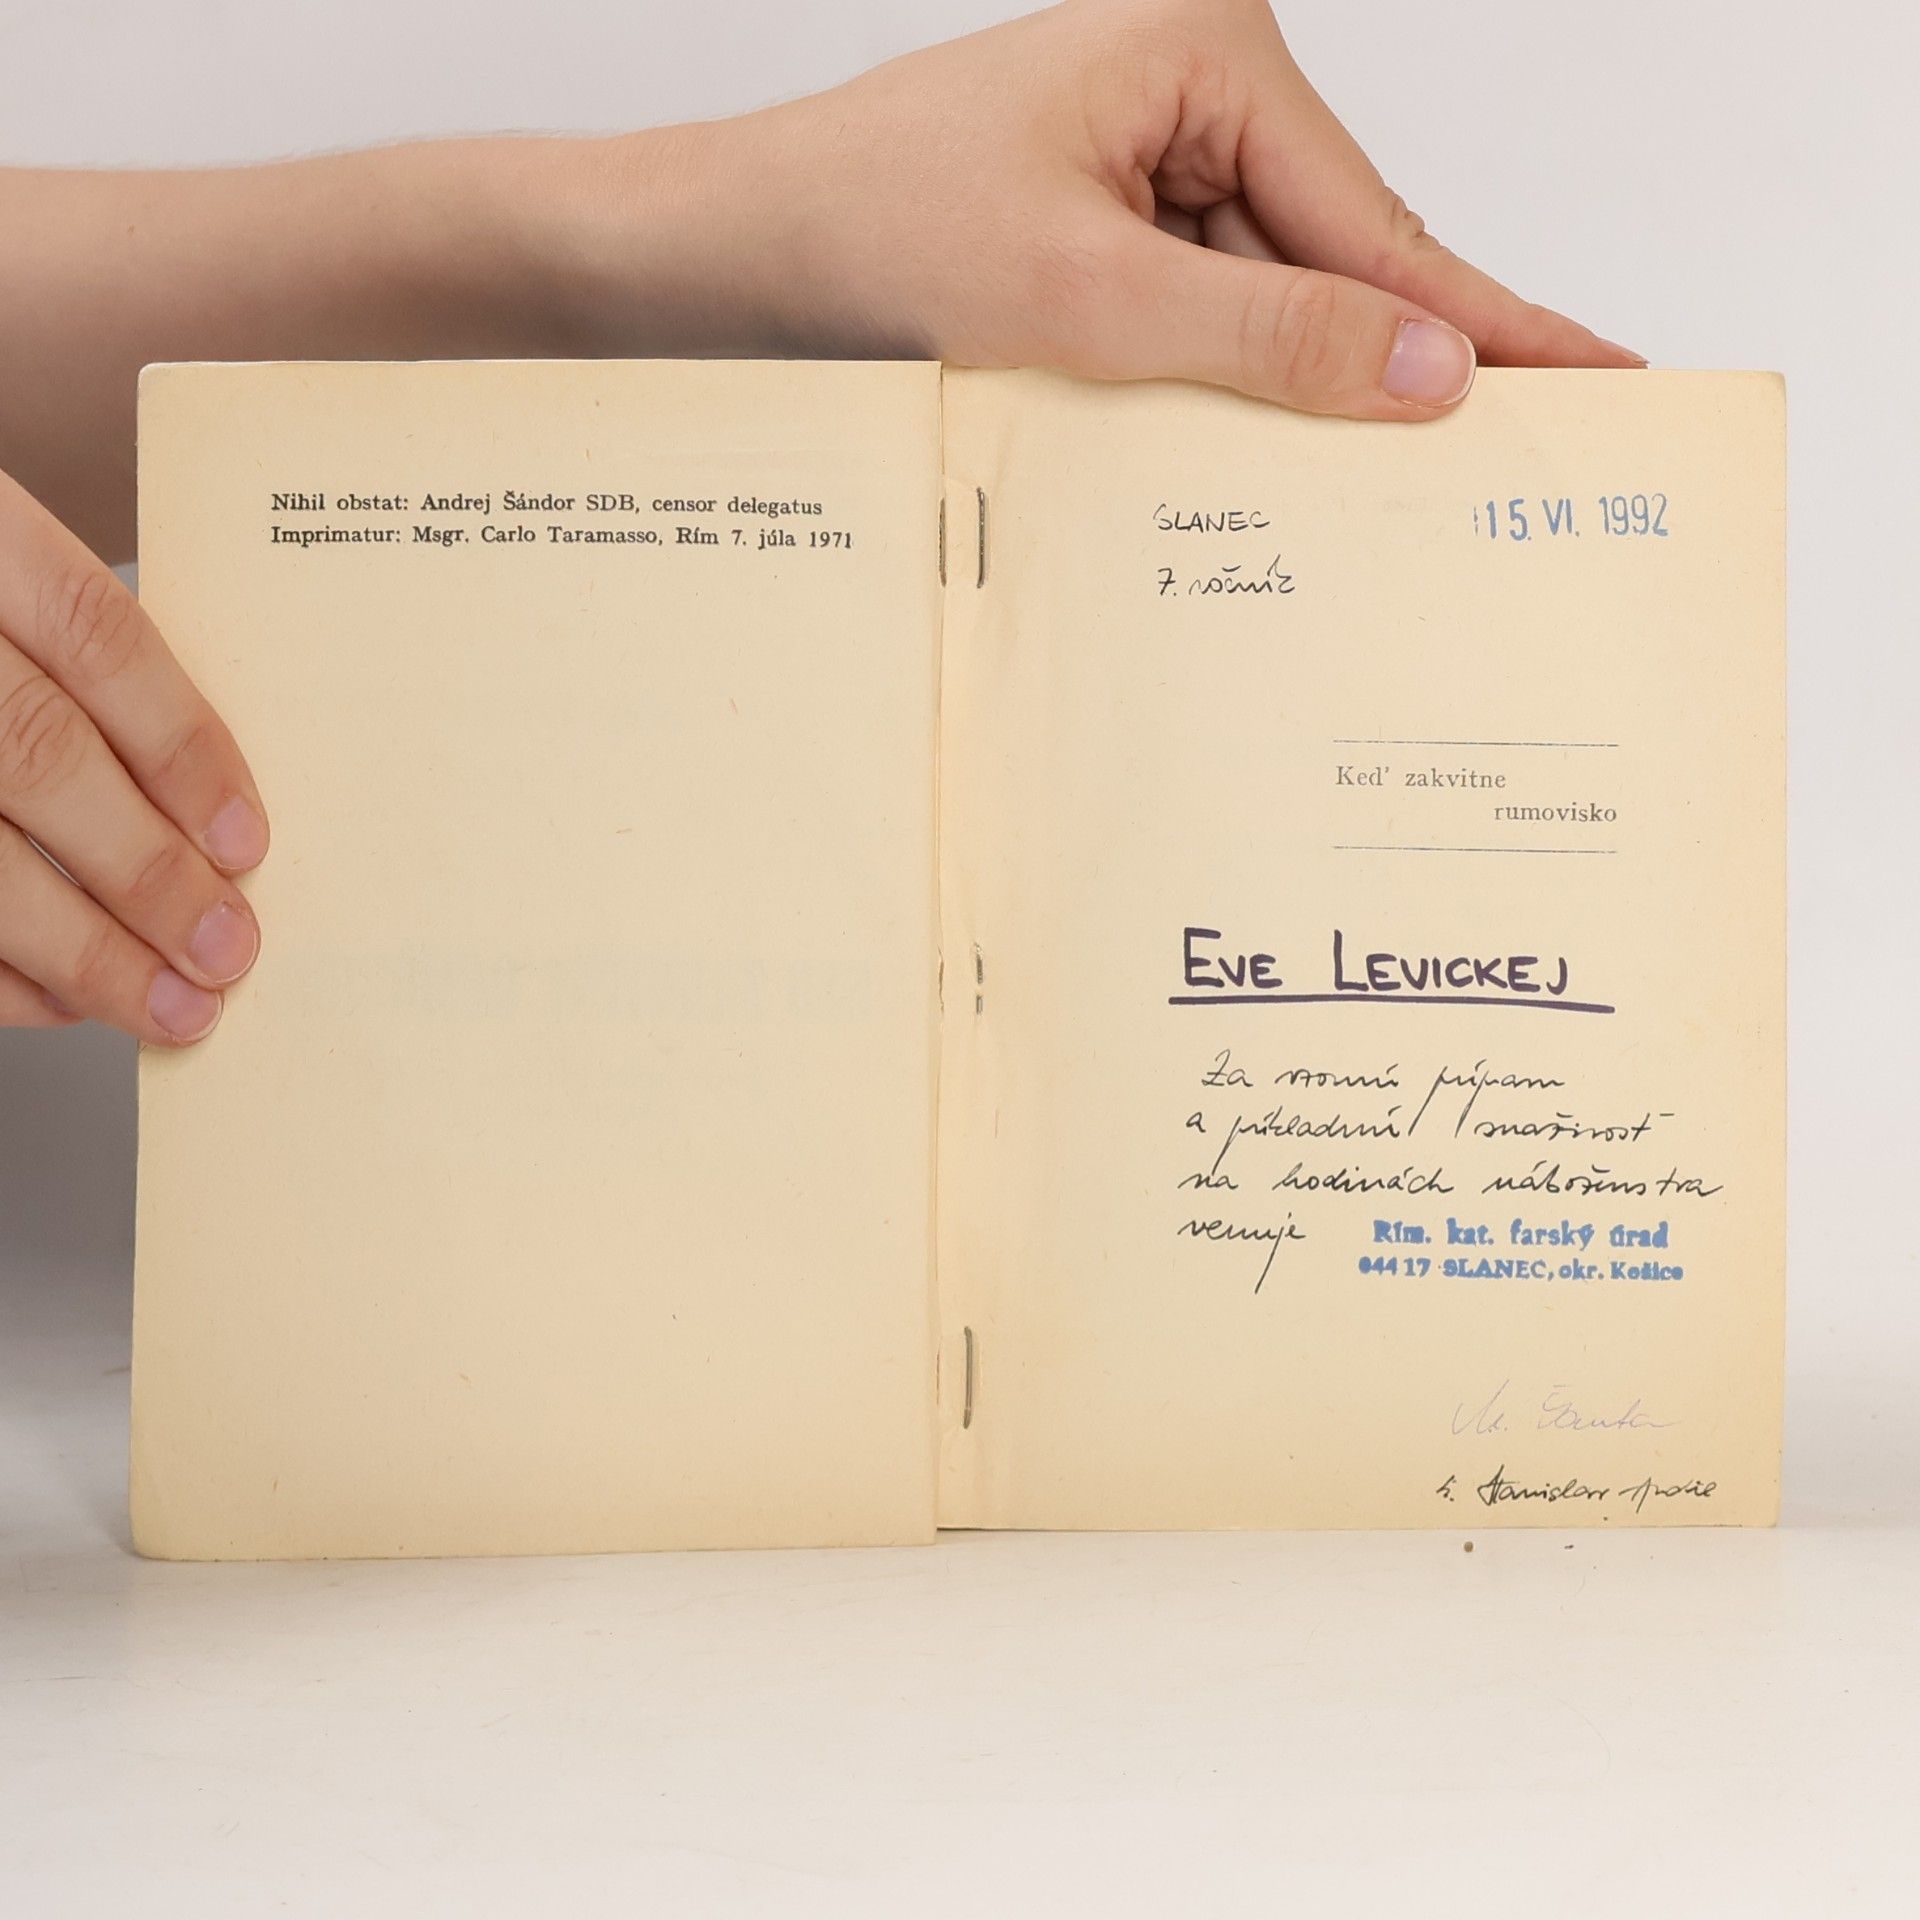 Nihil obstat: Andrej Šándor SDB, censor delegatus
Imprimatur: Msgr. Carlo Taramasso, Rím 7. júla 1971
SLANEC
15. VI. 1992
7. ročník
Keď zakvitne
rumovisko
EVE LEVICKEJ
Za vzornú prípravu
a príkladnú snaživosť
na hodinách náboženstva
venuje
Rím. kat. farský úrad
044 17 SLANEC, okr. Košice
Stanislav